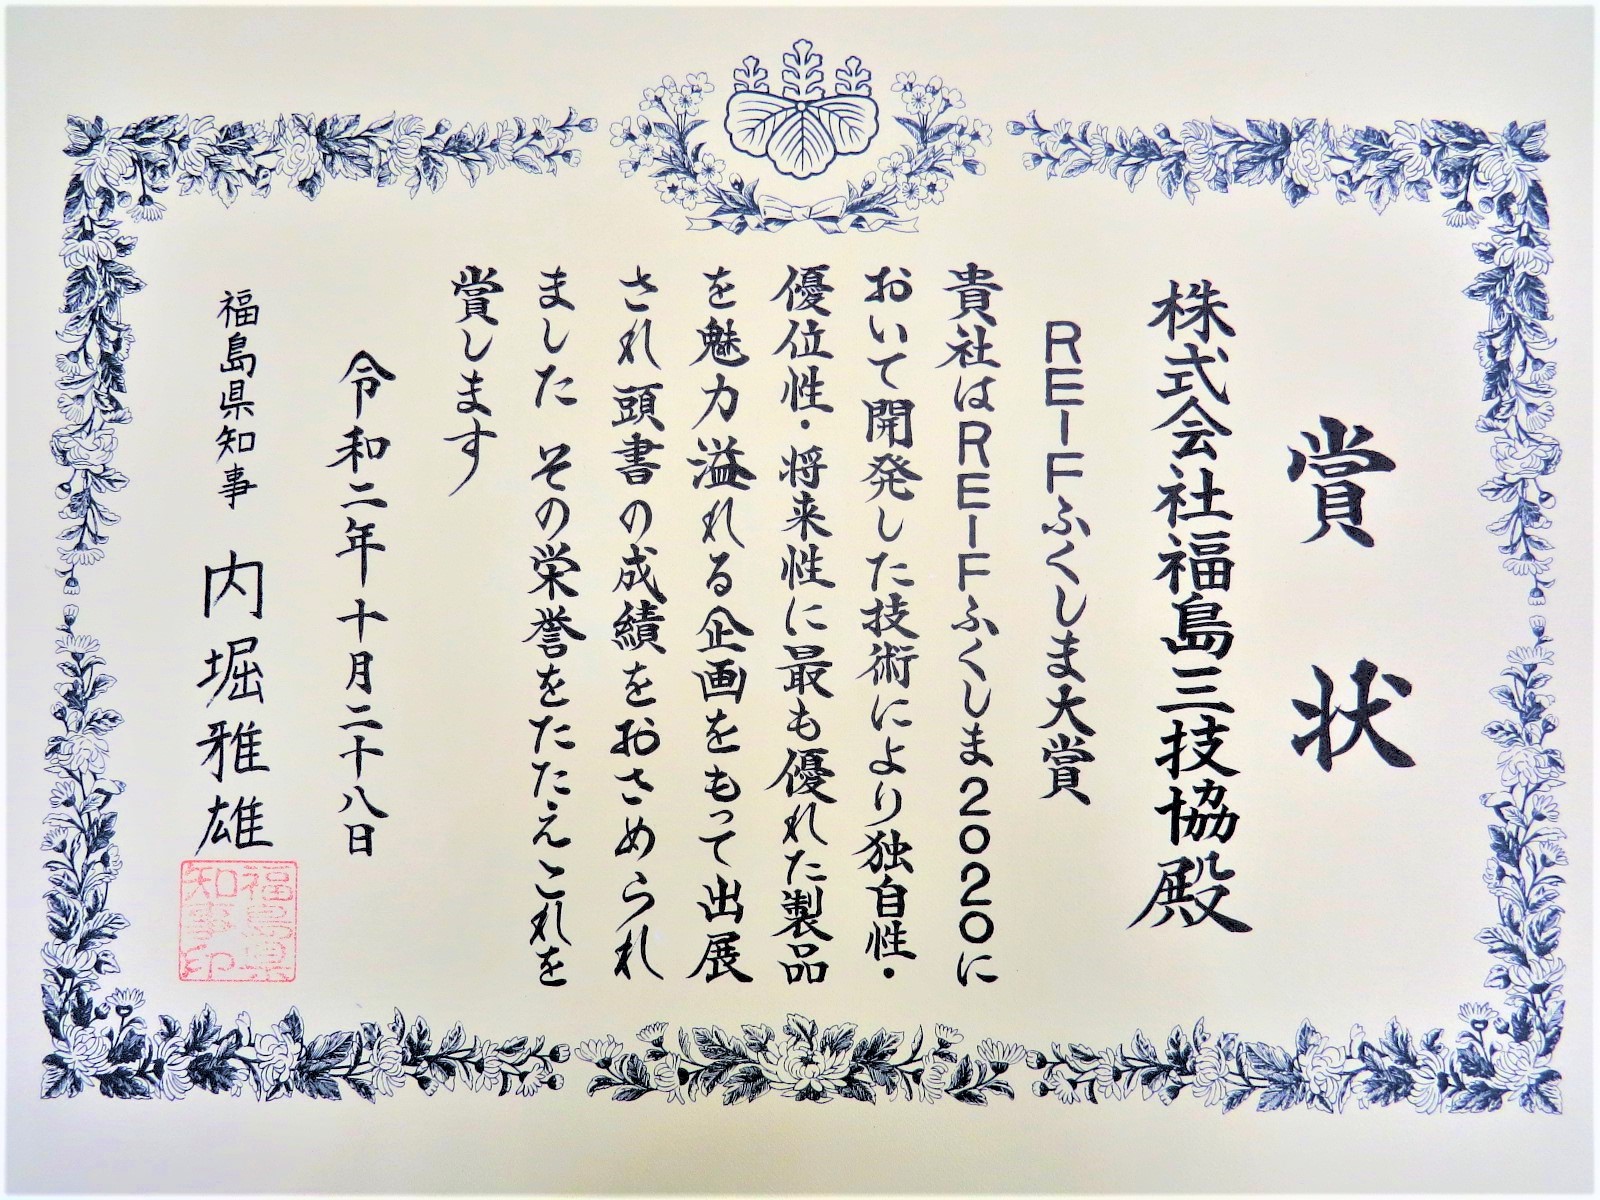 賞状
株式会社福島三技協殿
REIFふくしま大賞
貴社はREIFふくしま2020に
おいて開発した技術により独自性・
優位性・将来性に最も優れた製品
を魅力溢れる企画をもって出展
され頭書の成績をおさめられ
ました その栄誉をたたえこれを
賞します
令和二年十月二十八日
福島県知事 内堀雅雄
福島県
知事印